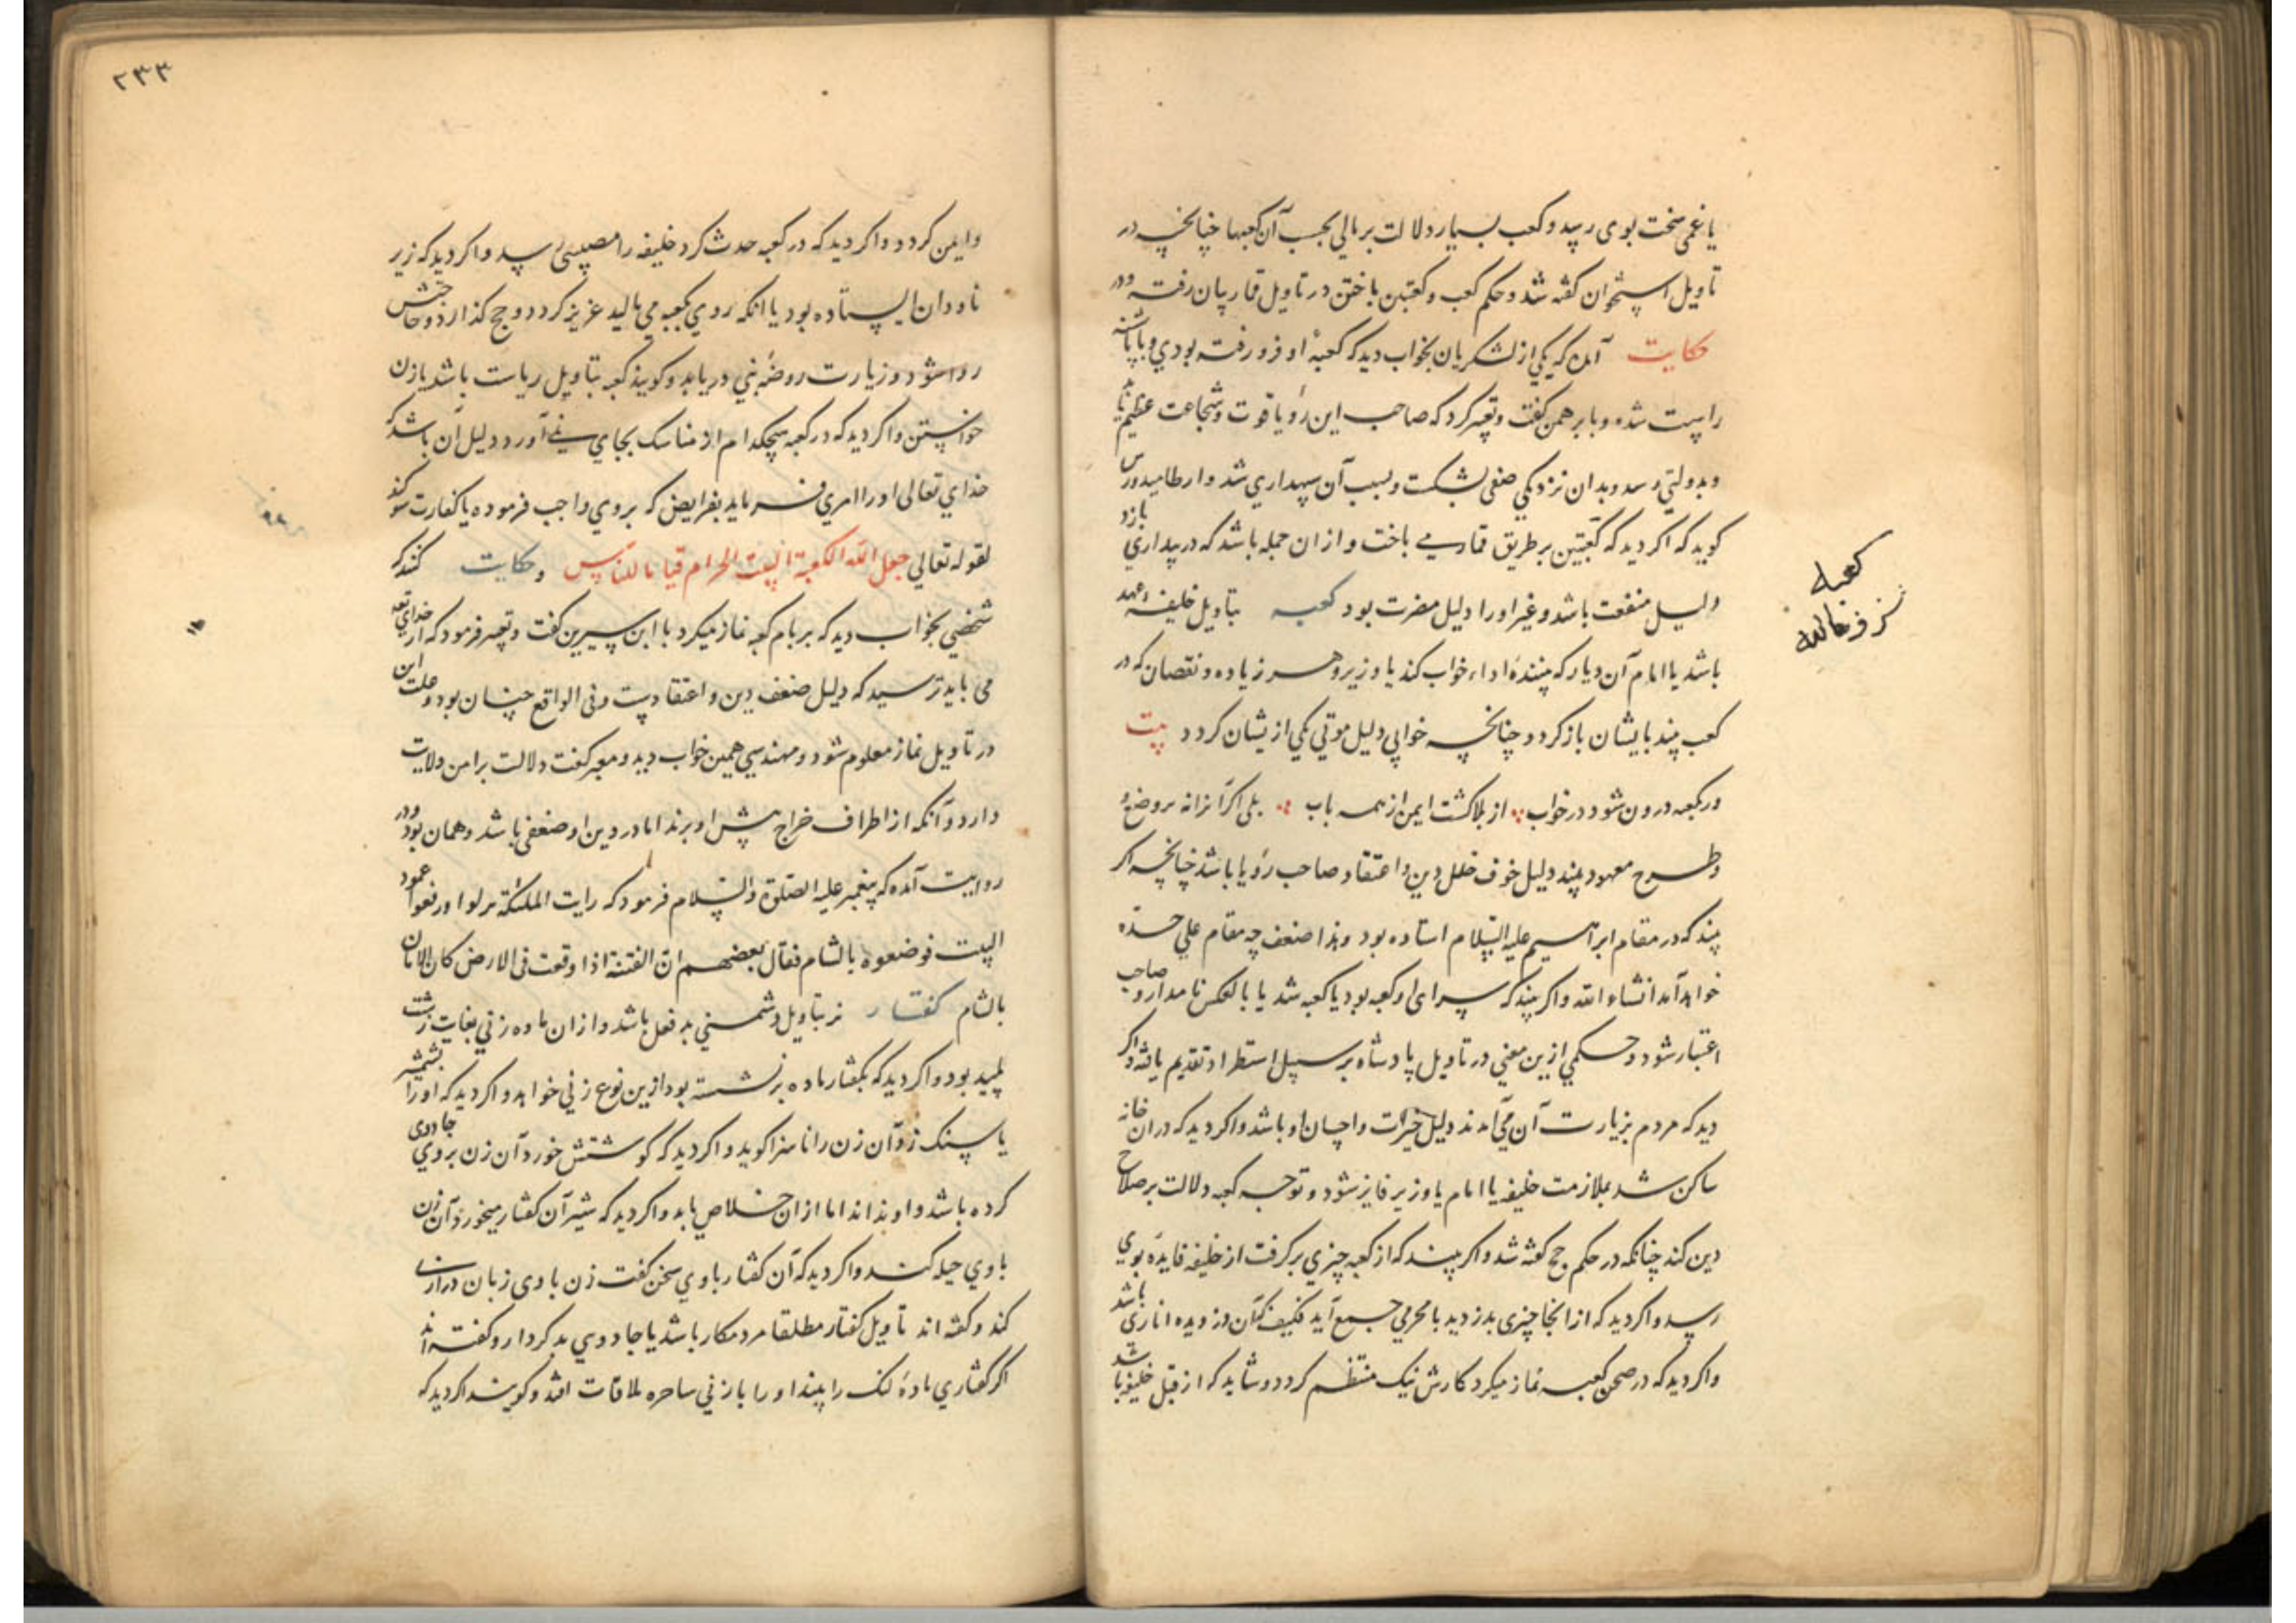 یا غمی سخت بوی رسد و کعب بسیار دلالت بر مالی بحسب آن کعبها چنانچه در
تاویل استخوان گفته شد و حکم کعب و کعبتین باختن در تاویل قمار بیان رفته ودر
حکایت آمده که یکی از لشکریان بخواب دید که کعبهٔ او فرو رفته بودی و با پاشنه
راست شده و با برهمن گفت و تعبیر کرد که صاحب این رؤیا قوت و شجاعت عظیم
و بدولتی رسد و بدان نزدیکی صفی بشکست و بسبب آن سپهداری شد
کوید که اکر دید که کعبتین بر طریق قمار می باخت و از آن جمله باشد که در بیداری بازد
دلیل منفعت باشد و غیر او را دلیل مضرت بود کعبه بتاویل خلیفهٔ عهد
باشد یا امام آن دیار که بینندهٔ اداء خواب کند یا وزیر و هر زیاده و نقصان که در
کعب بیند بایشان باز کردد چنانچه خرابی دلیل موتی یکی ازیشان کردد بیت
در کعبه درون شود در خواب از بلا کشت ایمن از همه باب بلی اکر آنرا نه بر وضع و
طرح معهود بیند دلیل خوف خلل دین و اعتقاد صاحب رؤیا باشد چنانچه اکر
بیند که در مقام ابراهیم علیه السلام استاده بود و هذا ضعف چه مقام علی حده
خواهد آمد انشاء الله و اکر بیند که سرای او کعبه بود یا کعبه شد یا بالعکس نامدار و صاحب
اعتبار شود و حکمی ازین معنی در تاویل پادشاه بر سبیل استطراد تقدیم یافته و اکر
دید که مردم بزیارت آن می آمدند دلیل خیرات و احسان او باشد و اکر دید که در آن خانه
ساکن شد بملازمت خلیفه یا امام یا وزیر فایز شود و توجه کعبه دلالت بر صلاح
دین کند چنانکه در حکم حج گفته شد و اکر بیند که از کعبه چیزی بر کرفت از خلیفه فایدهٔ بوی
رسد و اکر دید که از آنجا چیزی بدزدید با محرمی جمع آید
و اکر دید که در صحن کعبه نماز میکرد کارش نیک منتظم کردد و شاید که از قبل خلیفه باشد
کعبه
۲۳۳
و ایمن کردد و اکر دید که در کعبه حدث کرد خلیفه را مصیبتی رسد و اکر دید که زیر
ناودان ایستاده بود یا آنکه روی کعبه می مالید عزیز کردد و حج کذارد و حاجتش
روا شود و زیارت روضهٔ نبی دریابد و کویند کعبه بتاویل ریاست باشد یا زن
خواستن و اکر دید که در کعبه هیچکدام از مناسک بجای نمی آورد دلیل آن باشد که
خدای تعالی او را امری فرماید بفرایض که بر وی واجب فرموده یا کفارت سوکند
لقوله تعالی جعل الله الکعبة البیت الحرام قیاما للناس و حکایت کنند که
شخصی بخواب دید که بر بام کعبه نماز میکرد با ابن سیرین گفت و تعبیر فرمود که از خدای
می باید ترسید که دلیل ضعف دین و اعتقادست و فی الواقع چنان بود و علت این
در تاویل نماز معلوم شود و مهندسی همین خواب دید و معبر کفت دلالت بر امن ولایت
دارد و آنکه از اطراف خراج پیش او برند اما در دین او ضعفی باشد و همان بود ودر
روایت آمده که پیغمبر علیه الصلوة والسلام فرمود که رایت الملئکة نزلوا و رفعوا عمود
البیت فوضعوه بالشام فقال بعضهم ان الفتنة اذا وقعت فی الارض کان الامان
بالشام کفتار نر بتاویل دشمنی بد فعل باشد و از آن ماده زنی بغایت زشت
پلید بود و اکر دید که بکفتار ماده بر نشسته بود ازین نوع زنی خواهد و اکر دید که او را بشمشیر
یا سنک زد آن زن را ناسزا کوید و اکر دید که کوشتش خورد آن زن بروی جادوی
کرده باشد و او نداند اما از آن خلاص یابد و اکر دید که شیر آن کفتار میخورد آن زن
با وی حیله کند و اکر دید که آن کفتار با وی سخن کفت زن با وی زبان درازی
کند و گفته اند تاویل کفتار مطلقا مرد مکار باشد یا جادوی بد کردار و کفته اند
اکر کفتاری مادهٔ لنک را بیند او را با زنی ساحره ملاقات افتد و کویند اکر دید که